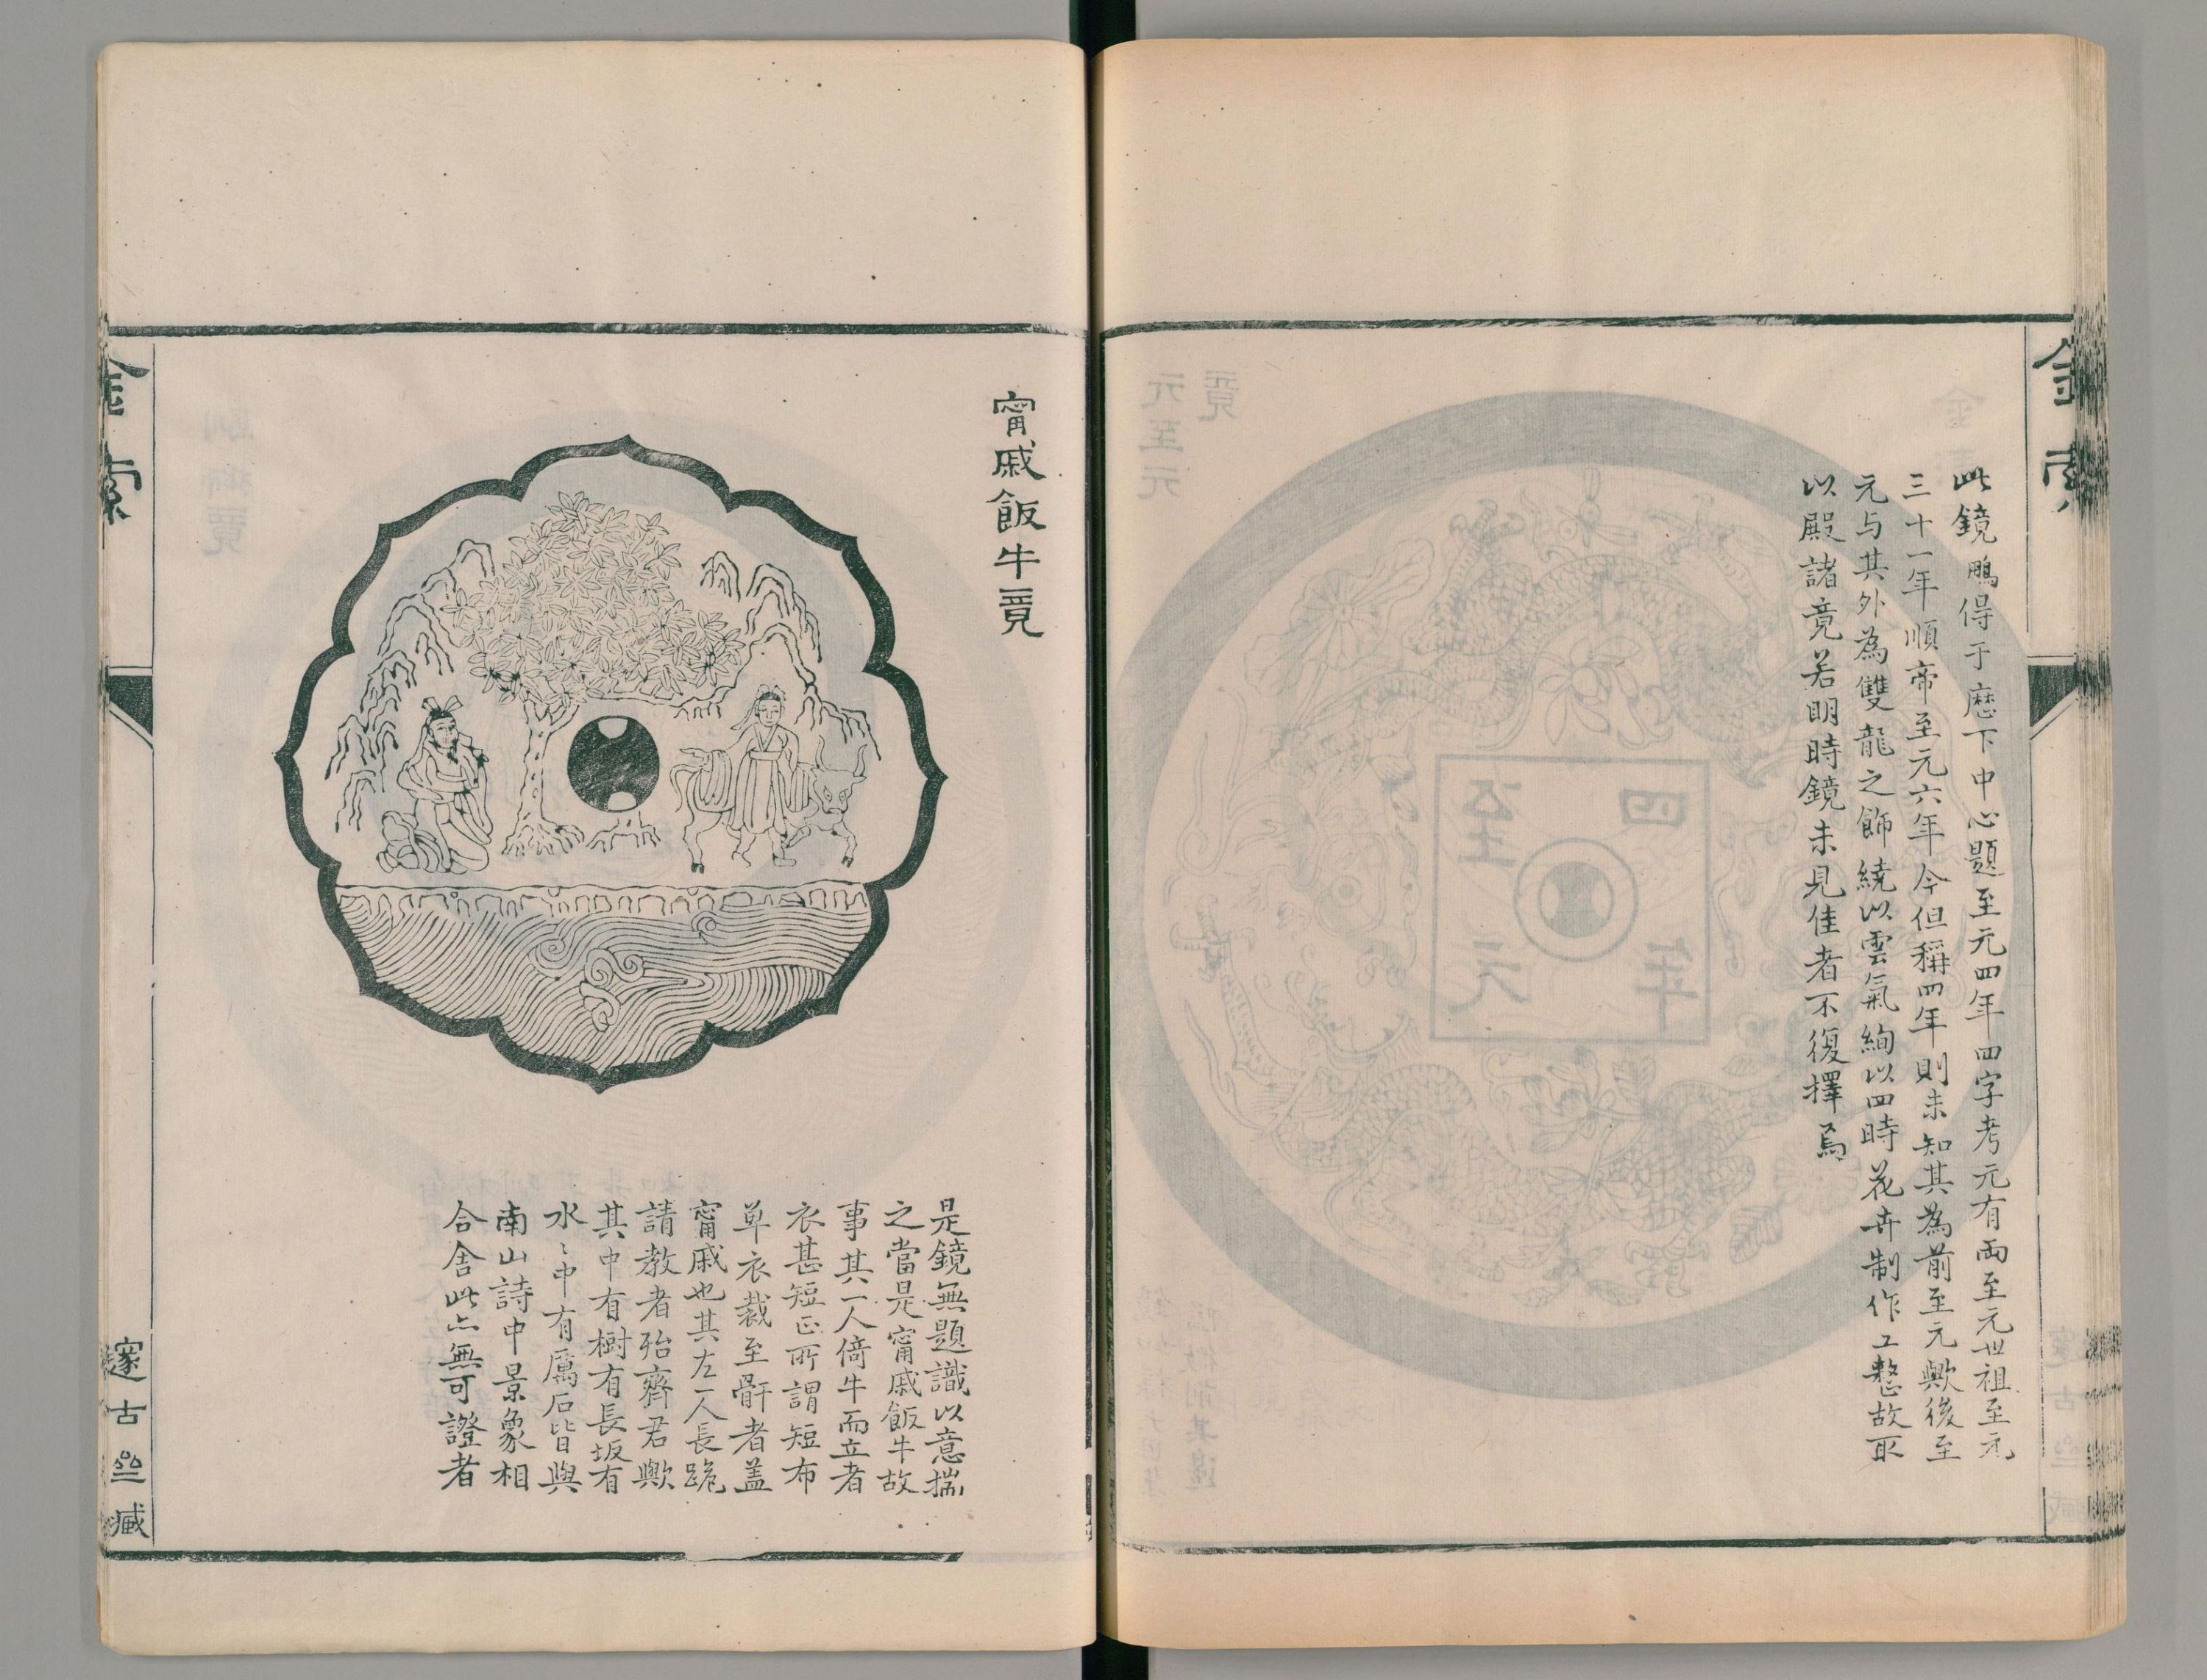 金索
此鏡鵬得于厯下中心題至元四年四字考元有兩至元世祖至元
三十一年順帝至元六年今但稱四年則未知其為前至元歟後至
元与其外為雙龍之飾繞以雲氣絢以四時花卉制作工整故取
以殿諸竟若明時鏡未見佳者不復擇焉
甯戚飯牛竟
是鏡無題識以意揣
之當是甯戚飯牛故
事其一人倚牛而立者
衣甚短正所謂短布
單衣裁至骭者蓋
甯戚也其左一人長跪
請教者殆齊君歟
其中有樹有長坂有
水〻中有厲石皆與
南山詩中景象相
合舍此亾無可證者
金索
邃古亝藏